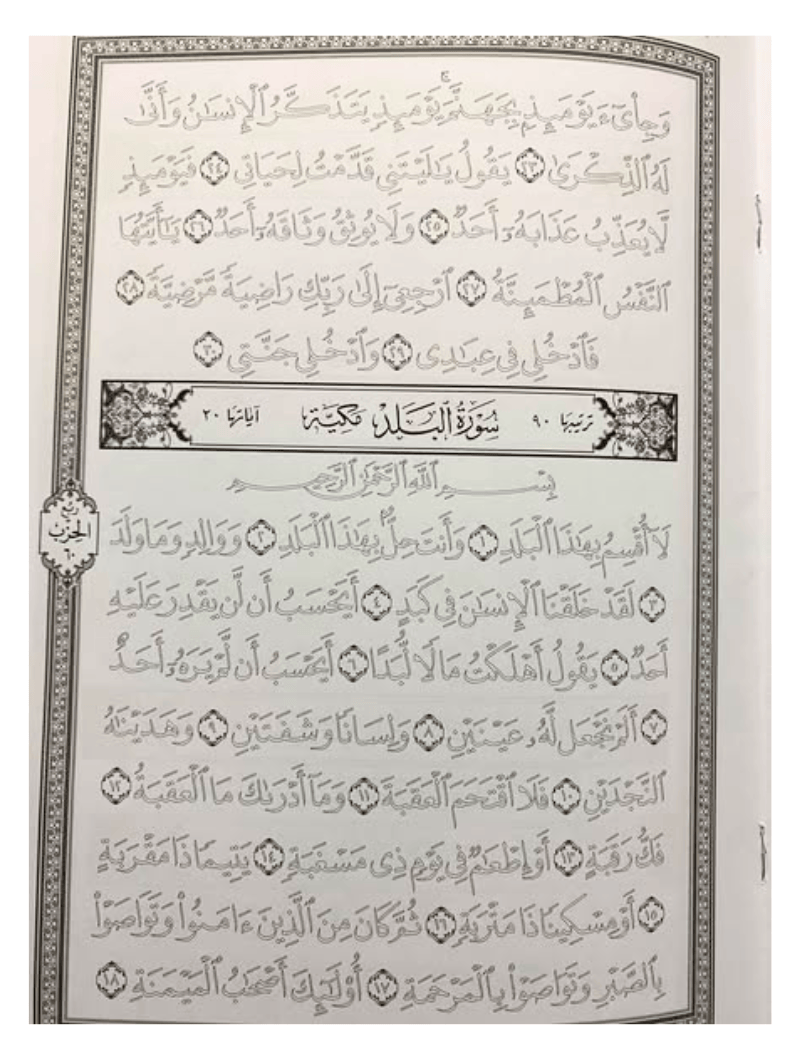 وَجِا۟ىٓءَ يَوْمَئِذٍۭ بِجَهَنَّمَ ۚ يَوْمَئِذٍ يَتَذَكَّرُ ٱلْإِنسَـٰنُ وَأَنَّىٰ
لَهُ ٱلذِّكْرَىٰ ٢٣ يَقُولُ يَـٰلَيْتَنِى قَدَّمْتُ لِحَيَاتِى ٢٤ فَيَوْمَئِذٍ
لَّا يُعَذِّبُ عَذَابَهُۥٓ أَحَدٌ ٢٥ وَلَا يُوثِقُ وَثَاقَهُۥٓ أَحَدٌ ٢٦ يَـٰٓأَيَّتُهَا
ٱلنَّفْسُ ٱلْمُطْمَئِنَّةُ ٢٧ ٱرْجِعِىٓ إِلَىٰ رَبِّكِ رَاضِيَةً مَّرْضِيَّةً ٢٨
فَٱدْخُلِى فِى عِبَـٰدِى ٢٩ وَٱدْخُلِى جَنَّتِى ٣٠
ترتيبها ٩٠ سُورَةُ ٱلْبَلَدِ مَكِيَّة آياتها ٢٠
بِسْمِ ٱللَّهِ ٱلرَّحْمَـٰنِ ٱلرَّحِيمِ
لَآ أُقْسِمُ بِهَـٰذَا ٱلْبَلَدِ ١ وَأَنتَ حِلٌّۢ بِهَـٰذَا ٱلْبَلَدِ ٢ وَوَالِدٍ وَمَا وَلَدَ
٣ لَقَدْ خَلَقْنَا ٱلْإِنسَـٰنَ فِى كَبَدٍ ٤ أَيَحْسَبُ أَن لَّن يَقْدِرَ عَلَيْهِ
أَحَدٌ ٥ يَقُولُ أَهْلَكْتُ مَالًا لُّبَدًا ٦ أَيَحْسَبُ أَن لَّمْ يَرَهُۥٓ أَحَدٌ
٧ أَلَمْ نَجْعَل لَّهُۥ عَيْنَيْنِ ٨ وَلِسَانًا وَشَفَتَيْنِ ٩ وَهَدَيْنَـٰهُ
ٱلنَّجْدَيْنِ ١٠ فَلَا ٱقْتَحَمَ ٱلْعَقَبَةَ ١١ وَمَآ أَدْرَىٰكَ مَا ٱلْعَقَبَةُ ١٢
فَكُّ رَقَبَةٍ ١٣ أَوْ إِطْعَـٰمٌ فِى يَوْمٍ ذِى مَسْغَبَةٍ ١٤ يَتِيمًا ذَا مَقْرَبَةٍ
١٥ أَوْ مِسْكِينًا ذَا مَتْرَبَةٍ ١٦ ثُمَّ كَانَ مِنَ ٱلَّذِينَ ءَامَنُوا۟ وَتَوَاصَوْا۟
بِٱلصَّبْرِ وَتَوَاصَوْا۟ بِٱلْمَرْحَمَةِ ١٧ أُو۟لَـٰٓئِكَ أَصْحَـٰبُ ٱلْمَيْمَنَةِ ١٨
رُبْع
الحِزْب
٦٠